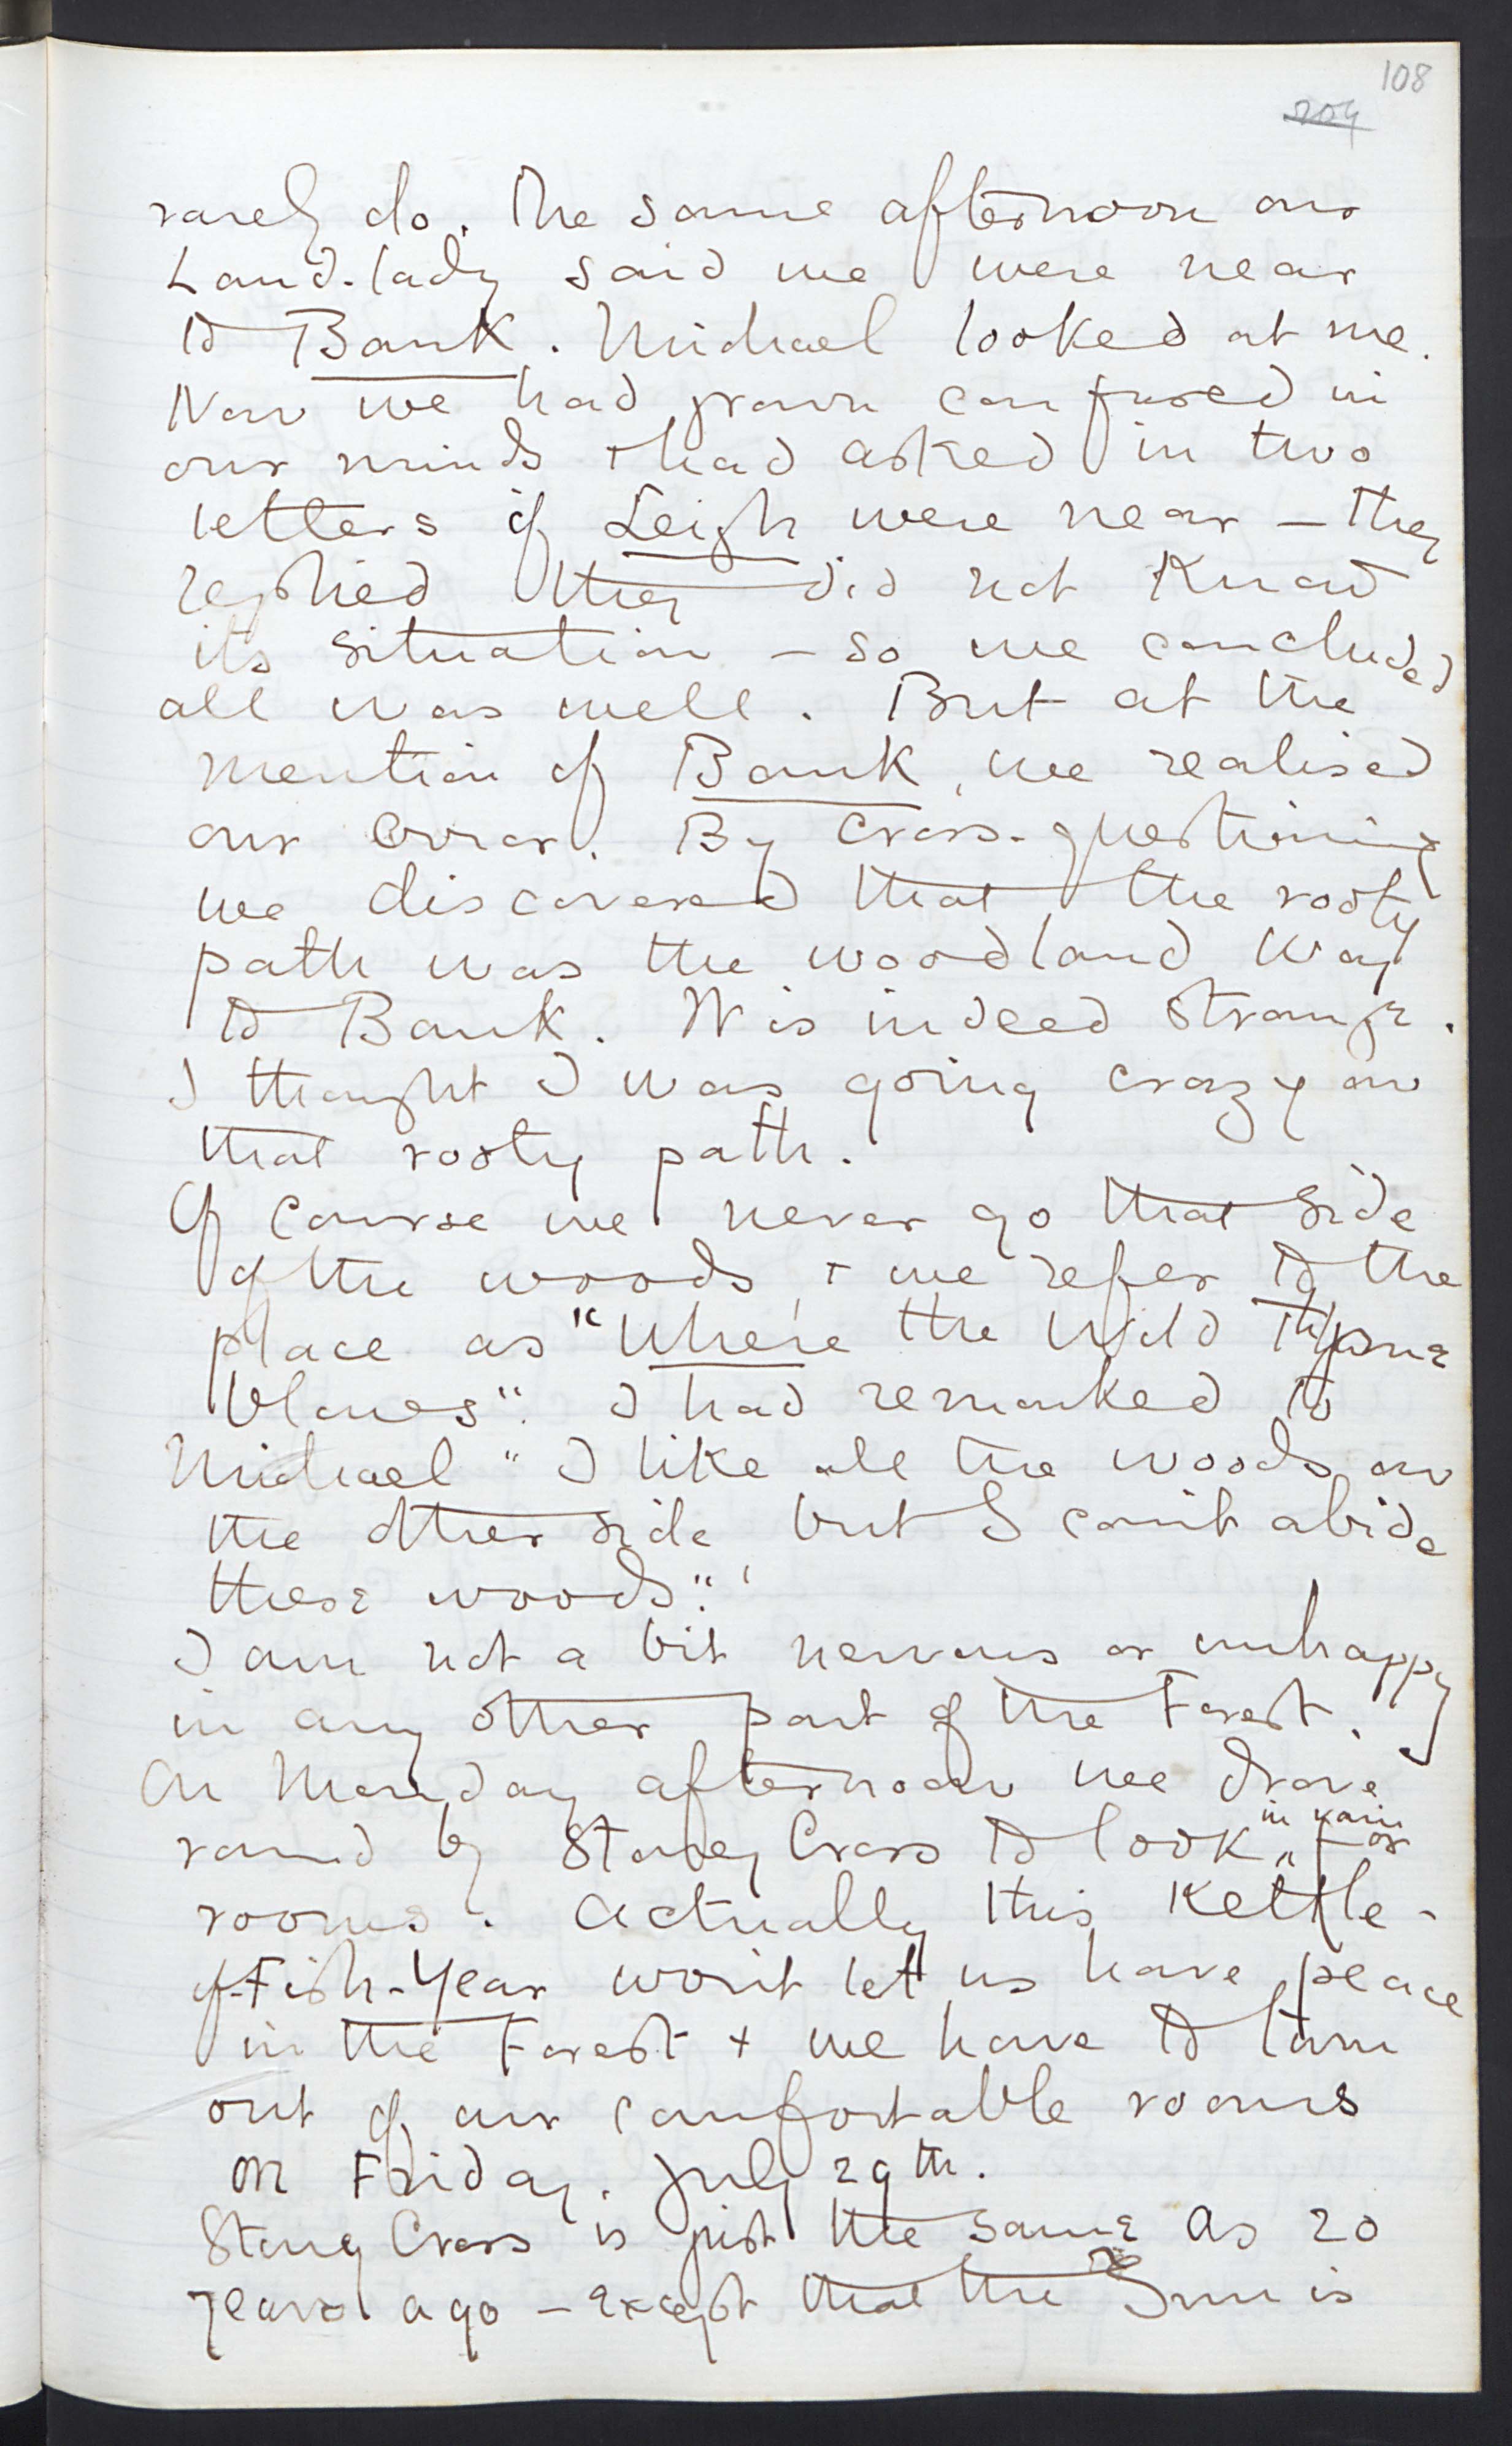 108
204
rarely do. The same afternoon our
Land-lady said we were near
to Bank. Michael looked at me.
Now we had grown confused in
our minds + had asked in two
letters if Leigh were near — they
replied they did not know
its situation — so we concluded
all was well. But at the
mention of Bank, we realised
our error. By cross-questioning
we discovered that the rooty
path was the woodland way
to Bank. It is indeed strange.
I thought I was going crazy on
that rooty path.
Of course we never go that side
of the woods, + we refer to the
place as "Where the Wild Thyme
blows". I had remarked to
Michael "I like all the woods on
the other side but I can't abide
these woods".
I am not a bit nervous or unhappy
in any other part of the Forest.
On Monday afternoon we drove
round by Stoney Cross to look in vain for
rooms. Actually this Kettle-
of-Fish-Year won't let us have peace
in the Forest + we have to turn
out of our comfortable rooms
on Friday. July 29th.
Stoney Cross is just the same as 20
years ago — except that the Inn is